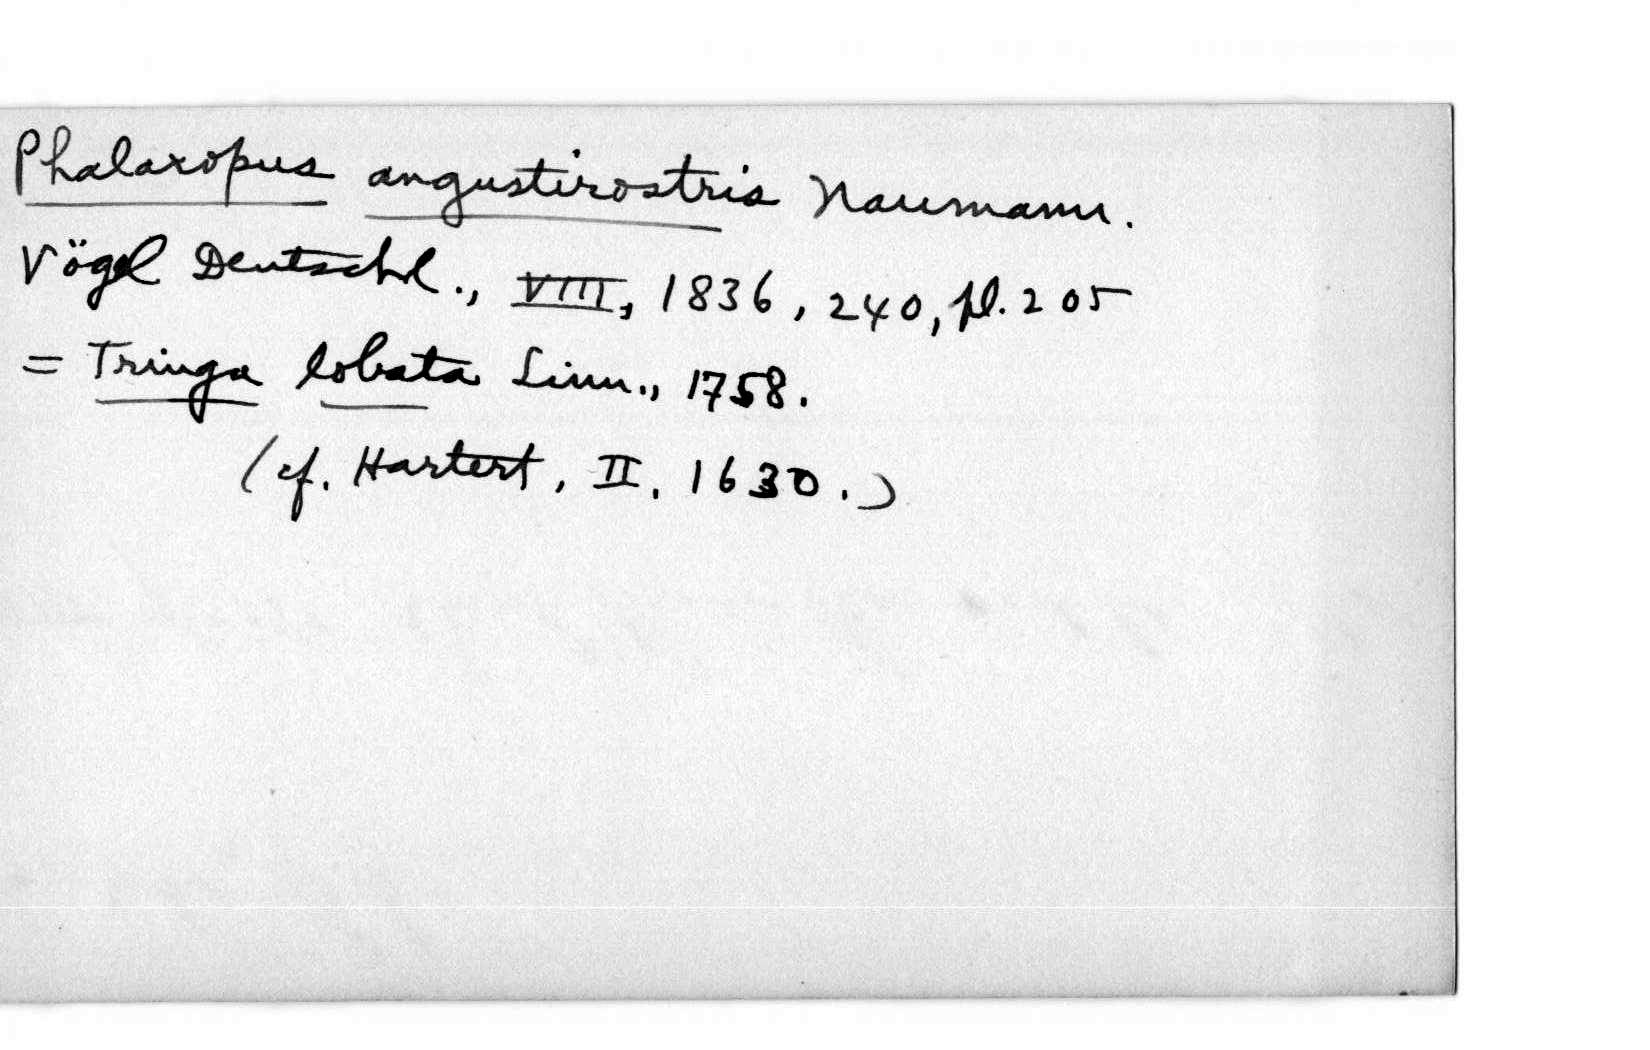 Phalaropus angustirostris Naumann.
Vögel Deutschl., VIII, 1836, 240, pl. 205
= Tringa lobata Linn., 1758.
(cf. Hartert, II. 1630.)